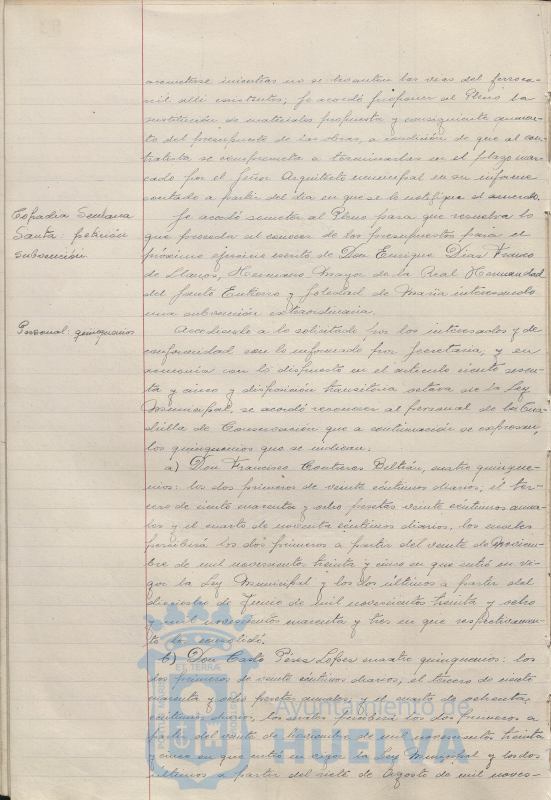 acometerse mientras no se levanten las vias del ferroca-
rril allí existentes, se acordó proponer al Pleno la
sustitución de materiales propuesta y consiguiente aumen-
to del presupuesto de las obras, a condición de que el con-
tratista se comprometa a terminarlas en el plazo mar-
cado por el Señor Arquitecto municipal en su informe
contado a partir del dia en que se le notifique el acuerdo.
Cofradia Semana
Santa: petición
subvención.
Se acordó someter al Pleno para que resuelva lo
que proceda al conocer de los presupuestos para el
próximo ejercicio escrito de Don Enrique Diaz Franco
de Llanos, Hermano Mayor de la Real Hermandad
del Santo Entierro y Soledad de Maria interesando
una subvención extraordinaria.
Personal: quinquenios
Accediendo a lo solicitado por los interesados y de
conformidad con lo informado por Secretaria, y en
armonia con lo dispuesto en el articulo ciento sesen-
ta y cinco y disposición transitoria octava de la Ley
Municipal, se acordó reconocer al personal de la Cua-
drilla de Conservación que a continuación se expresan,
los quinquenios que se indican:
a) Don Francisco Contreras Beltrán, cuatro quinque-
nios: los dos primeros de veinte céntimos diarios; el ter-
cero de ciento cuarenta y ocho pesetas veinte céntimos anua-
les y el cuarto de noventa céntimos diarios, los cuales
percibirá los dos primeros a partir del veinte de Noviem-
bre de mil novecientos treinta y cinco en que entró en vi-
gor la Ley Municipal y los dos últimos a partir del
dieciocho de Junio de mil novecientos treinta y ocho
y mil novecientos cuarenta y tres en que respectivamen-
te los consolidó.
b) Don Casto Pérez López cuatro quinquenios: los
dos primeros de veinte céntimos diarios, el tercero de ciento
cuarenta y ocho pesetas anuales y el cuarto de ochenta
céntimos diarios, los cuales percibirá los dos primeros a
partir del veinte de Noviembre de mil novecientos treinta
y cinco en que entró en vigor la Ley Municipal y los dos
últimos a partir del siete de Agosto de mil noves-
Ayuntamiento de
HUELVA